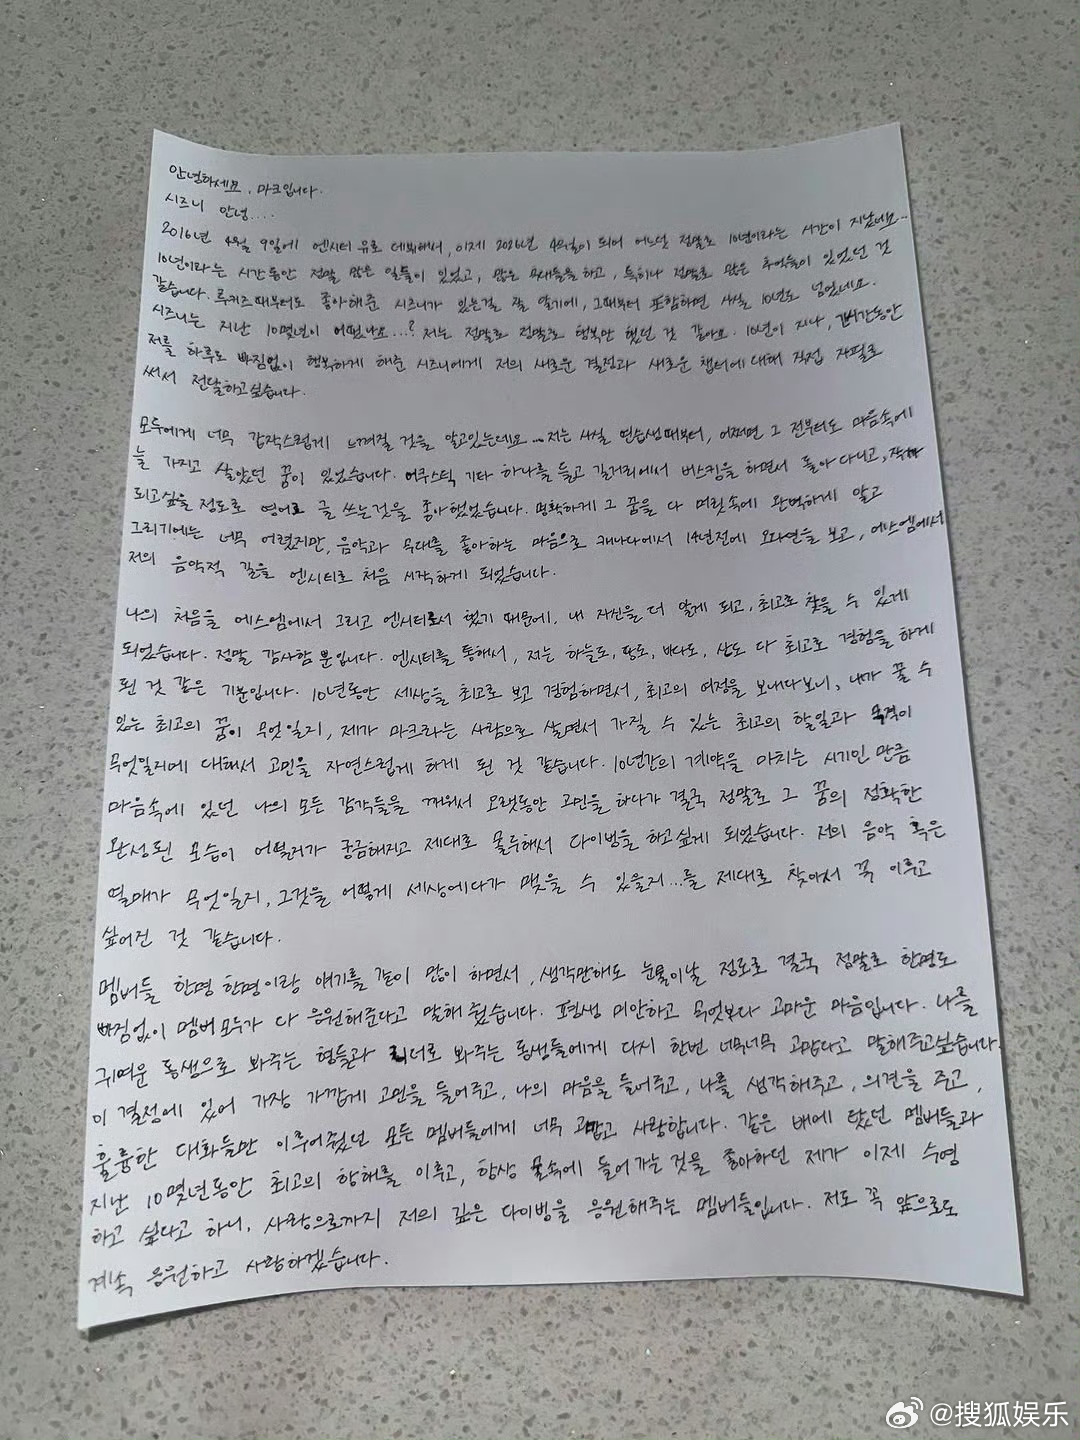 안녕하세요, 마크입니다.
시즈니 안녕....
2016년 4월 9일에 엔시티 유로 데뷔해서, 이제 2026년 4월이 되어 어느새 정말로 10년이라는 시간이 지났네요..
10년이라는 시간동안 정말 많은 일들이 있었고, 많은 무대들을 하고, 특히나 정말로 많은 추억들이 있었던 것
같습니다. 루키즈때부터도 좋아해준 시즈니가 있는걸 잘 알기에, 그때부터 포함하면 사실 10년도 넘었네요.
시즈니는 지난 10몇년이 어땠나요...? 저는 정말로 정말로 행복만 했던 것 같아요. 10년이 지나, 긴시간동안
저를 하루도 빠짐없이 행복하게 해준 시즈니에게 저의 새로운 결정과 새로운 챕터에 대해 직접 자필로
써서 전달하고싶습니다.
모두에게 너무 갑작스럽게 느껴질 것을 알고있는데요... 저는 사실 연습생때부터, 어쩌면 그 전부터도 마음속에
늘 가지고 살았던 꿈이 있었습니다. 어쿠스틱 기타 하나를 들고 길거리에서 버스킹을 하면서 돌아다니고, 작가
되고싶을 정도로 영어로 글 쓰는것을 좋아했었습니다. 명확하게 그 꿈을 다 머릿속에 완벽하게 알고
그리기에는 너무 어렸지만, 음악과 무대를 좋아하는 마음으로 캐나다에서 14년전에 오디션을 보고, 에스엠에서
저의 음악적 길을 엔시티로 처음 시작하게 되었습니다.
나의 처음을 에스엠에서 그리고 엔시티로서 했기 때문에, 내 자신을 더 알게 되고, 최고로 찾을 수 있게
되었습니다. 정말 감사할 뿐입니다. 엔시티를 통해서, 저는 하늘도, 땅도, 바다도, 산도 다 최고로 경험을 하게
된 것 같은 기분입니다. 10년동안 세상을 최고로 보고 경험하면서, 최고의 여정을 보내다보니, 내가 꿀 수
있는 최고의 꿈이 무엇일지, 제가 마크라는 사람으로 살면서 가질 수 있는 최고의 할일과 목적이
무엇일지에 대해서 고민을 자연스럽게 하게 된 것 같습니다. 10년간의 계약을 마치는 시기인 만큼
마음속에 있던 나의 모든 감각들을 깨워서 오랫동안 고민을 하다가 결국 정말로 그 꿈의 정확한
완성된 모습이 어떨지가 궁금해지고 제대로 몰두해서 다이빙을 하고싶게 되었습니다. 저의 음악 혹은
열매가 무엇일지, 그것을 어떻게 세상에다가 맺을 수 있을지...를 제대로 찾아서 꼭 이루고
싶어진 것 같습니다.
멤버들 한명 한명이랑 얘기를 같이 많이 하면서, 생각만해도 눈물이날 정도로 결국 정말로 한명도
빠짐없이 멤버 모두가 다 응원해준다고 말해줬습니다. 평생 미안하고 무엇보다 고마운 마음입니다. 나를
귀여운 동생으로 봐주는 형들과 리더로 봐주는 동생들에게 다시 한번 너무너무 고맙다고 말해주고싶습니다.
이 결정에 있어 가장 가깝게 고민을 들어주고, 나의 마음을 들어주고, 나를 생각해주고, 의견을 주고,
훌륭한 대화들만 이루어줬던 모든 멤버들에게 너무 고맙고 사랑합니다. 같은 배에 탔던 멤버들과
지난 10몇년동안 최고의 항해를 이루고, 항상 물속에 들어가는 것을 좋아하던 제가 이제 수영
하고 싶다고 하니, 사랑으로까지 저의 깊은 다이빙을 응원해주는 멤버들입니다. 저도 꼭 앞으로도
계속 응원하고 사랑하겠습니다.
@搜狐娱乐